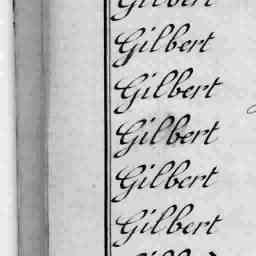 Gilbert
Gilbert
Gilbert
Gilbert
Gilbert
Gilbert